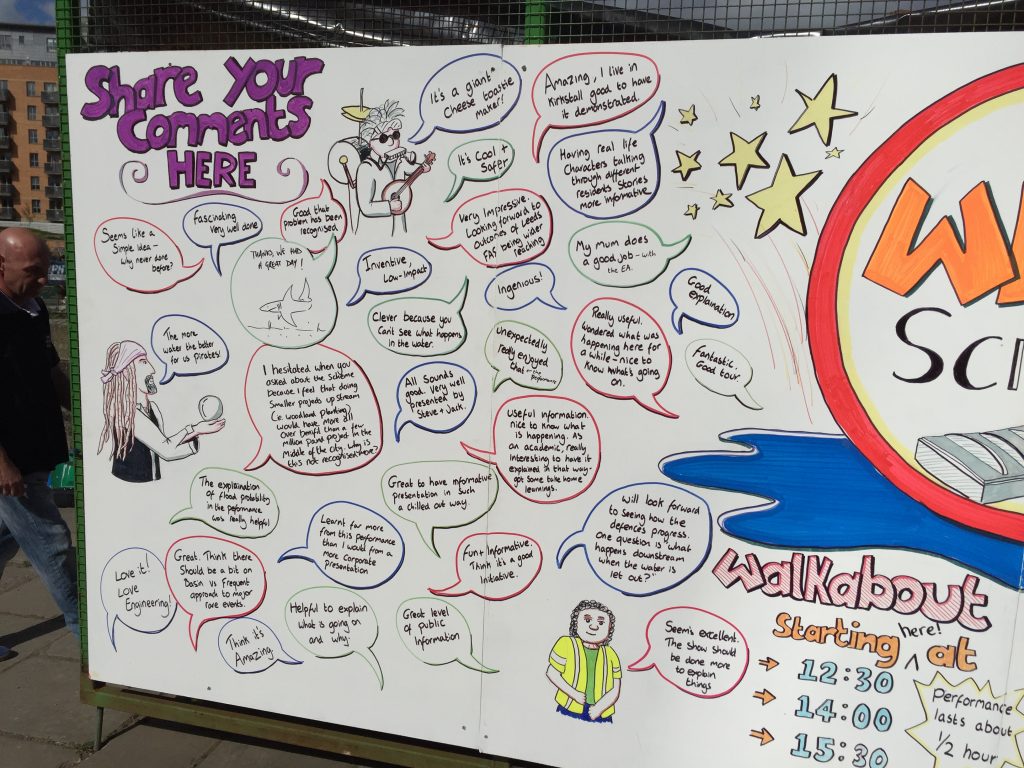 Share Your
Comments
HERE
It's a giant*
Cheese toastie
maker!
Amazing, I live in
Kirkstall good to have
it demonstrated.
It's Cool +
Safer
Having real life
Characters talking
through different
residents stories
more informative
Seems like a
Simple idea –
why never done
before?
Fascinating
Very well done
Good that
problem has been
recognised.
THANKS, WE HAD
A GREAT DAY!
Inventive,
Low-Impact
Very Impressive.
Looking forward to
Outcomes of Leeds
FAS being wider
reaching
My mum does
a good job – with
the EA.
Ingenious!
Good
explanation
Clever because you
Cant see what happens
in the water.
Unexpectedly
really enjoyed
that – the Performance
Really useful.
Wondered what was
happening here for
a while – nice to
know what's going
on.
Fantastic.
Good tour
The more
water the better
for us pirates!
I hesitated when you
asked about the scheme
because I feel that doing
Smaller projects up stream
(i.e. woodland planting)
would have more all
over benifit than a few
million pound project in the
Middle of the city. Why is
this not recognised more?
All Sounds
good very well
presented by
Steve + Jack.
Useful information.
nice to know what
is happening. As
an academic, really
interesting to have it
explained in that way –
got some take home
learnings.
The explaination
of flood probability
in the performance
was really helpful
Great to have informative
presentation in such
a chilled out way.
Learnt far more
from this performance
than I would from a
more Corporate
presentation
Will look forward
to seeing how the
defences progress.
One question is "what
happens downstream
when the water is
let out?"
Love it!
Love
Engineering!
Great. Think there
Should be a bit on
Basin vs frequent
approach to major
rare events.
Fun + Informative.
Think it's a good
Initiative.
Think it's
Amazing
Helpful to explain
what is going on
and why
Great level
of public
Information
Seems excellent.
The show should
be done more
to explain
things
Sci
Walkabout
Starting here! at
12:30
14:00
15:30
Performance
lasts about
1/2 hour